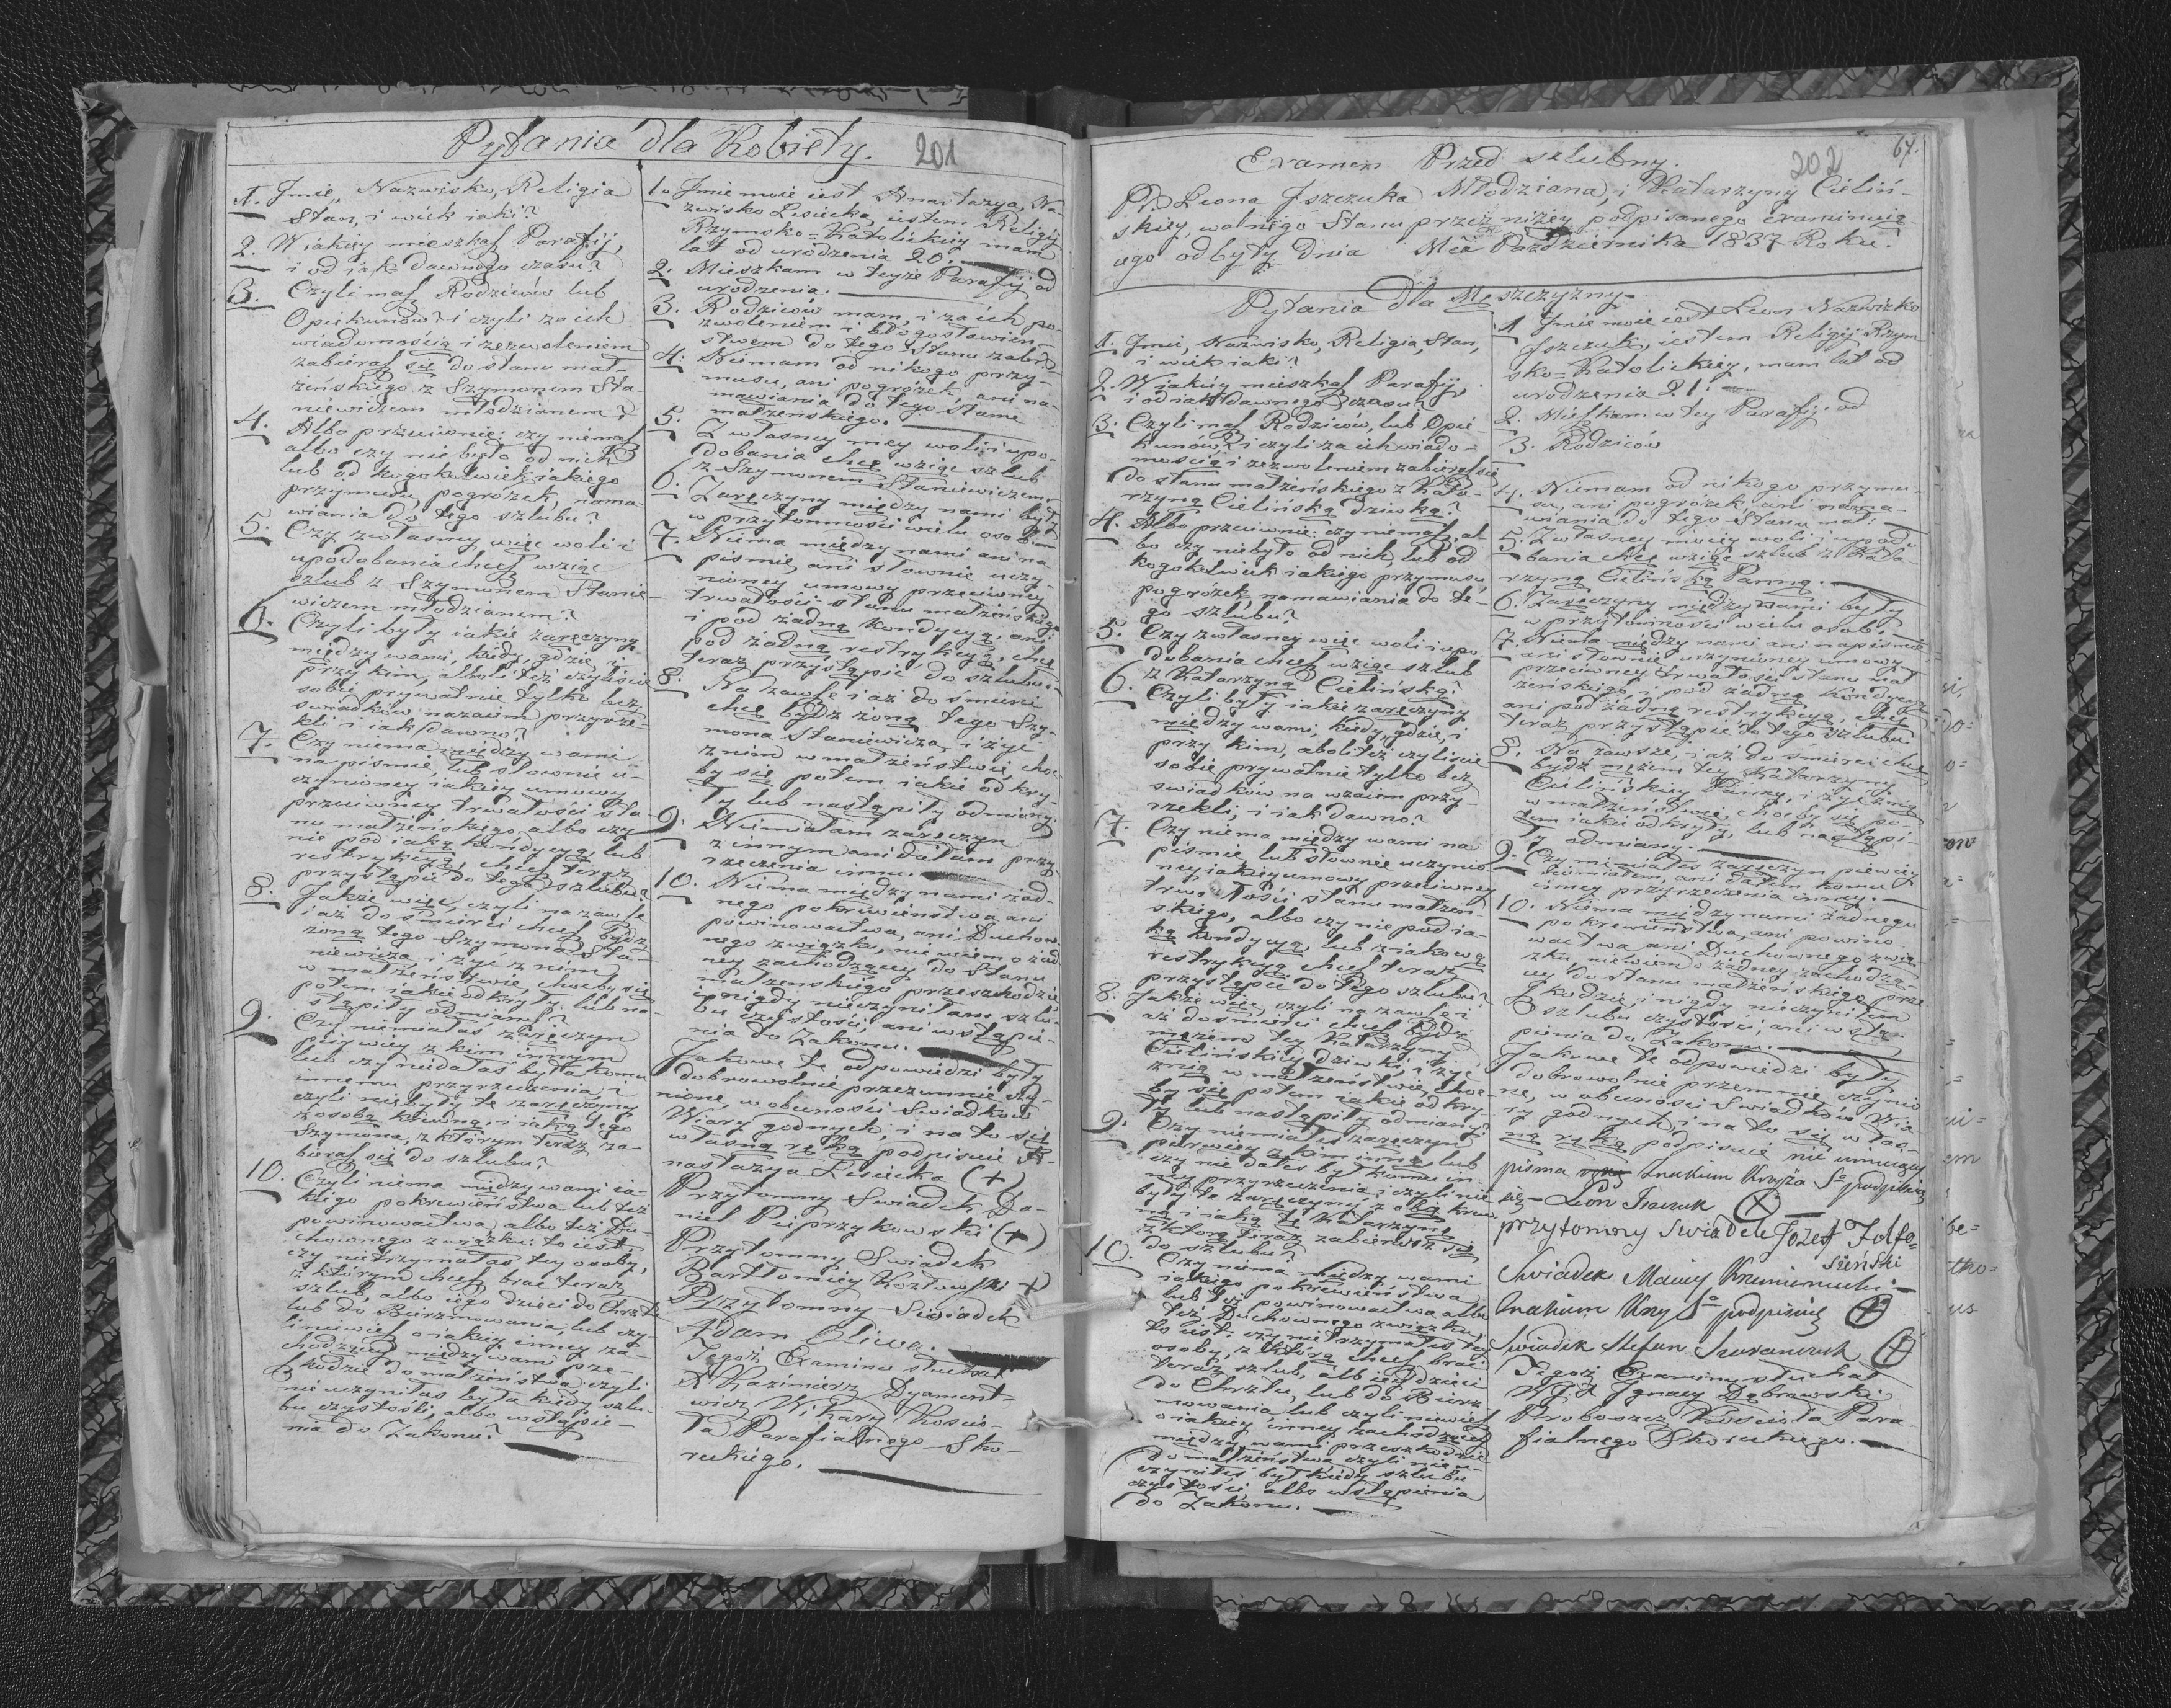 Pytania dla Kobiety. 201
1. Jmie, Nazwisko, Religia
Stan, i wiek iaki?
2. W iakiey mieszkasz Parafij,
i od iak dawnego czasu?
3. Czyli masz Rodziców lub
Opiekunów? i czyli za ich
wiadomością i zezwoleniem
zabierasz się do stanu mał-
żeńskiego z Szymonem Sta-
niewiczem młodzianem?
4. Albo przeciwnie: czy niemasz
albo czy nie było od nich
lub od kogokolwiek iakiego
przymusu, pogróżek, nama-
wiania do tego szlubu?
5. Czy zwłasney więc woli i
upodobania chcesz wziąć
szlub z Szymonem Stanie-
wiczem młodzianem?
6. Czyli były iakie zaręczyny
między wami, kiedy, gdzie, i
przy kim, albo li też czyliście
sobie prywatnie tylko bez
swiadków nazaiem przyrze
kli i iak dawno?
7. Czy niema między wami
na pismie, lub słownie u-
czynioney iakiey umowy
przeciwney trwałości sta-
nu małżeńskiego, albo czy
nie pod iaką kondycyą, lub
restrykcyą, chcesz teraz
przystąpić do tego szlubu?
8. Jakże więc, czyli na zawsze
i aż do śmierci chcesz bydź
żoną tego Szymona Sta-
niewicza, i żyć z nim
w małżeństwie, choćby się
potem iakie odkryły lub na-
stąpiły odmiany?
9. Czy niemiałaś zaręczyn
pierwiey z kim innym
lub czy niedałaś była komu
innemu przyrzeczenia, i
czyli niebyły te zaręczyny
z osobą krewną, i iaką tego
Szymona, z którym teraz za-
bierasz się do szlubu?
10. Czyli niema między wami ia-
kiego pokrewieństwa lub też
powinowactwa, albo też Du-
chownego związku: to iest
czy nietrzymałaś tey osoby,
z którym chcesz brać teraz
szlub, albo iego dzieci do Chrztu
lub do Bierzmowania, lub czy-
li niewiesz o iakiey inney za-
chodzącey między wami prze-
szkodzie do małżeństwa, czyli
nieuczyniłaś była kiedy szlu-
bu czystości, albo wstąpie-
nia do Zakonu?
1. Jmie moie iest Anastazya, Na-
zwisko Lisiecka, iestem Religij
Rzymsko-Katolickiey mam
lat od urodzenia 20.
2. Mieszkam w teyże Parafij od
urodzenia.
3. Rodziców mam, i za ich po-
zwoleniem i błogosławień-
stwem do tego Stanu zabie-
4. Niemam od nikogo przy-
musu, ani pogróżek, ani na-
mawiania do tego stanu
małżeńskiego.
5. Z własney mey woli i upo-
dobania chcę wziąć szlub
z Szymonem Staniewiczem
6. Zaręczyny między nami były
w przytomności wielu osob.
7. Niema między nami ani na
pismie, ani słownie uczy-
nioney umowy przeciwney
trwałości stanu małżeńskiego
i pod żadną kondycyą, ani
pod żadną restrykcyą, chcę
teraz przystąpić do szlubu.
8. Na zawsze i aż do śmierci
chcę bydź żoną tego Szy-
mona Staniewicza, i żyć
z nim w małżeństwie, choć-
by się potem iakie odkry-
ły lub nastąpiły odmiany.
9. Niemiałam zaręczyn
z innym ani dałam przy-
rzeczenia inne.
10. Niema między nami żad-
nego pokrewieństwa ani
powinowactwa, ani Duchow-
nego związku, nie wiem o żad
ney zachodzącey do Stanu
małżeńskiego przeszkodzie,
i nigdy nieczyniłam szlu-
bu czystości, ani wstąpie-
nia do Zakonu.
Jakowe te odpowiedzi były
dobrowolnie przezemnie czy-
nione, w obecności Swiadków
Wiary godnych, i na to się
własną ręką podpisuie A-
nastazya Lisiecka (+)
Przytomny Swiadek Da-
niel Pieprzykowski (+)
Przytomny Swiadek
Bartłomiey Kozłowski +
Przytomny Swiadek
Adam Oliwa.
Tegoż Examinu słuchał
X Kazimierz Dyament-
wicz Wikary Koscio-
ła Parafialnego Sko-
reckiego.
202 67.
Examen Przed szlubny.
Leona Jszczuka Młodziana, i Katarzyny Cieliń-
skiey, wolnego Stanu przez niżey podpisanego examinuią-
cego odbyty Dnia Mca Pazdziernika 1837 Roku.
Pytania dla Męszczyzny.
1. Jmie, Nazwisko, Religia, Stan,
i wiek iaki?
2. W iakiey mieszkasz Parafij,
i od iak dawnego czasu?
3. Czyli masz Rodziców, lub Opie
kunów? i czyli za ich wiado-
mością i zezwoleniem zabierasz się
do stanu małżeńskiego z Kata-
rzyną Cielińską dziewką?
4. Albo przeciwnie: czy niemasz, al-
bo czy niebyło od nich, lub od
kogokolwiek iakiego przymusu,
pogrożek namawiania do te-
go szlubu?
5. Czy zwłasney więc woli i upo-
dobania chcesz wziąć szlub
z Katarzyną Cielińską?
6. Czyli były iakie zaręczyny
między wami, kiedy, gdzie, i
przy kim, abo li też czyliście
sobie prywatnie tylko bez
swiadków na wzaiem przy-
rzekli, i iak dawno?
7. Czy niema między wami na
piśmie lub słownie uczynio-
ney iakiey umowy przeciwney
trwałości stanu małżeń-
skiego, albo czy nie pod ia-
ką kondycyą, lub z iakową
restrykcyą chcesz teraz
przystąpić do tego szlubu?
8. Jakże więc, czyli na zawsze i
aż do śmierci chcesz bydź
mężem tey Katarzyny
Cielińskiey dziewki, i żyć
z nią w małżeństwie, choć-
by się potem iakie odkry-
ły lub nastąpiły odmiany?
9. Czy niemiałeś zaręczyn
pierwiey z kim inną lub
czy nie dałeś był komu in-
ney przyrzeczenia, i czyli nie
były te zaręczyny z osobą krew
ną i iaką tę Katarzyną
z którą teraz zabierasz się
do szlubu?
10. Czy niema między wami
iakiego pokrewieństwa
lub też powinowactwa albo
też Duchownego związku,
to iest: czy nietrzymałeś tey
osoby, z którą chcesz brać
teraz szlub, alb iey dzieci
do Chrztu, lub do Bierz-
mowania lub czyli niewiesz
o iakiey inney zachodzącey
między wami przeszkodzie
do małżeństwa, czyli nie u-
czyniłeś był kiedy szlubu
czystości, albo wstąpienia
do Zakonu.
1 Jmie moie iest Leon Nazwisko
Jszczuk, iestem Religij Rzym
sko-Katolickiey, mam lat od
urodzenia 21.
2. Mieszkam w tey Parafij od
3. Rodziców
4. Niemam od nikogo przymu-
su, ani pogróżek, ani nama-
wiania do tego Stanu mał:
5. Zwłasney moiey woli i upodo-
bania chcę wziąć szlub z Kata-
rzyną Cielińską Panną.
6. Zaręczyny między nami były
w przytomności wielu osob.
7. Niema między nami ani napismie
ani słownie uczynioney umowy
przeciwney trwałości stanu mał
żeńskiego, i pod żadną kondycyą
ani pod żadną restrykcyą, chcę
teraz przystąpić do tego szlubu.
8. Na zawsze, i aż do śmierci chcę
bydź mężem tey Katarzyny
Cielińskiey Panny, i żyć z nią
w małżeństwie, choćby się po-
tem iakie odkryły, lub nastąpi-
ły odmiany.
9. Czy niemiałeś zaręczyn pierwiey
niemiałem, ani dałem komu
inney przyrzeczenia inney.
10. Niema między nami żadnego
pokrewieństwa, ani powino
wactwa, ani Duchownego zwią-
zku, niewiem o żadney zachodzą-
cey do stanu małżeńskiego prze
szkodzie, i nigdy nieczyniłem
szlubu czystości, ani wstą-
pienia do Zakonu.
Jakowe te odpowiedzi były
dobrowolnie przemnie czynio
ne, w obecności Swiadków Wia-
ry godnych, i na to się włas-
ną ręką podpisuię nie umieiący
pisma znakiem Krzyża Sº podpisuię
się – Leon Iszczuk (X)
przytomny Swiadek Jozef Zołto-
sieński
Swiadek Maciey Krzemieniecki
znakiem Krzyża podpisuię (+)
Swiadek Stefan (+)
Tegoż Examinu słuchał
X Ignacy Dąbrowski
Proboszcz Koscioła Para-
fialnego Skoreckiego.